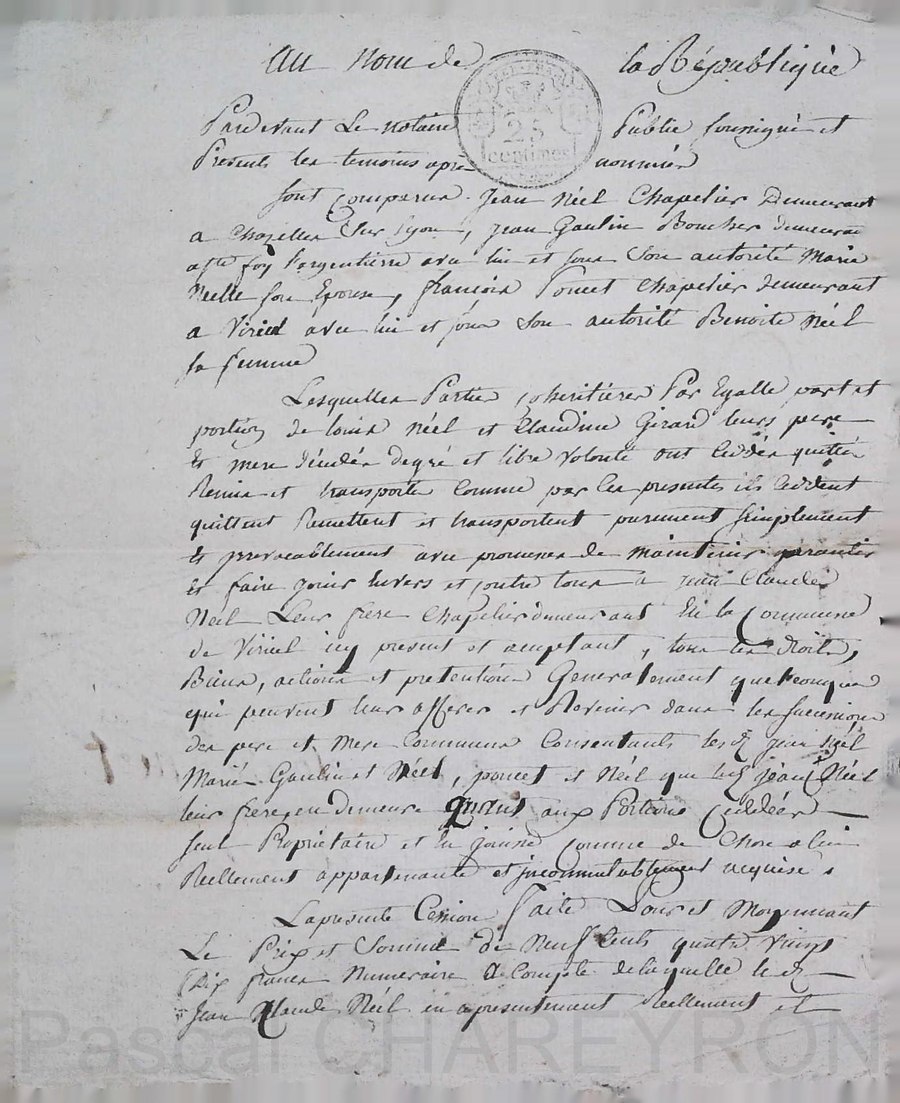 au nom de la République
25
centimes
Pardevant Le notaire Public soussigné et
Presents les temoins apres nommés
sont comparus Jean Néel Chapelier Demeurant
a Chazelles Sur Lyon, Jean Gaulin Boucher demeurant
a ste foy l'argentierre avec lui et sous son autorité Marie
Néelle son Epouse, françois Poncet Chapelier demeurant
a Viriel avec lui et sous son autorité Benoite Néel
sa femme
Lesquelles Parties coheritieres Par Egalle part et
portion de Louis Néel et Claudine Girard leurs pere
et mere décédés de gré et libre volonté ont Ceddés quittés
Remis et transporté comme par ces presentes ils Ceddent
quittent Remettent et transportent purement simplement
et irrevocablement avec promesse de maintenir garantir
et faire jouir Envers et contre tous a Jean Claude
Néel Leur frere Chapelier demeurant En la Commune
de Viriel icy present et acceptant, tous les droits,
Biens, actions et pretentions Generalement quelconques
qui peuvent leurs afferer et Revenir dans les successions
des pere et mere Communs Consentants les dt Jean Néel
Marié Gaulin et Néel, poncet et Néel que led Jean Cl Néel
leur frere en demeure Quant aux Portions Ceddées
seul Propriétaire et en jouisse comme de Chose a lui
Réellement appartenante et incommutablement acquise.
La presente Cession faite Pour et Moyennant
Le Prix et Somme de Neuf Cents quatre vingt
Dix francs Numeraire a Compte de laquelle le d
Jean Claude Néel en a presentement Réellement et
Pascal CHAREYRON